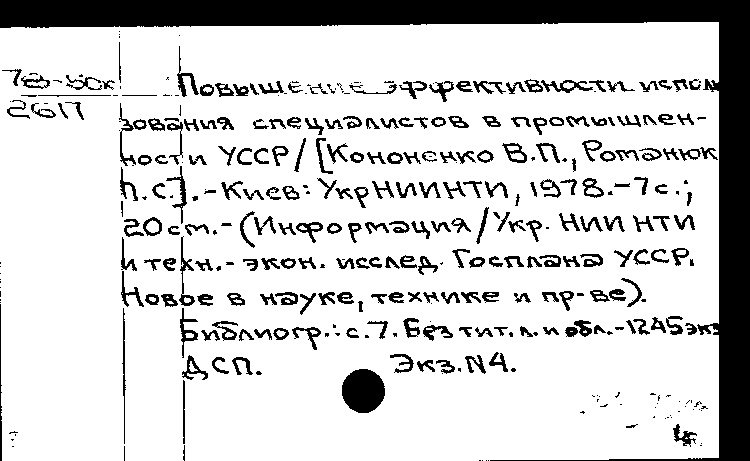 78-50к
2617
Повышение эффективности исполь
зования специалистов в промышлен-
ности УССР/[Кононенко В.П., Романюк
П.С.].-Киев: УкрНИИНТИ, 1978.-7с.;
20см.-(Информация/Укр. НИИ НТИ
и техн.-экон. исслед. Госплана УССР.
Новое в науке, технике и пр-ве).
Библиогр.: с.7. Без тит. л. и обл.-1245экз
ДСП. Экз.N4.